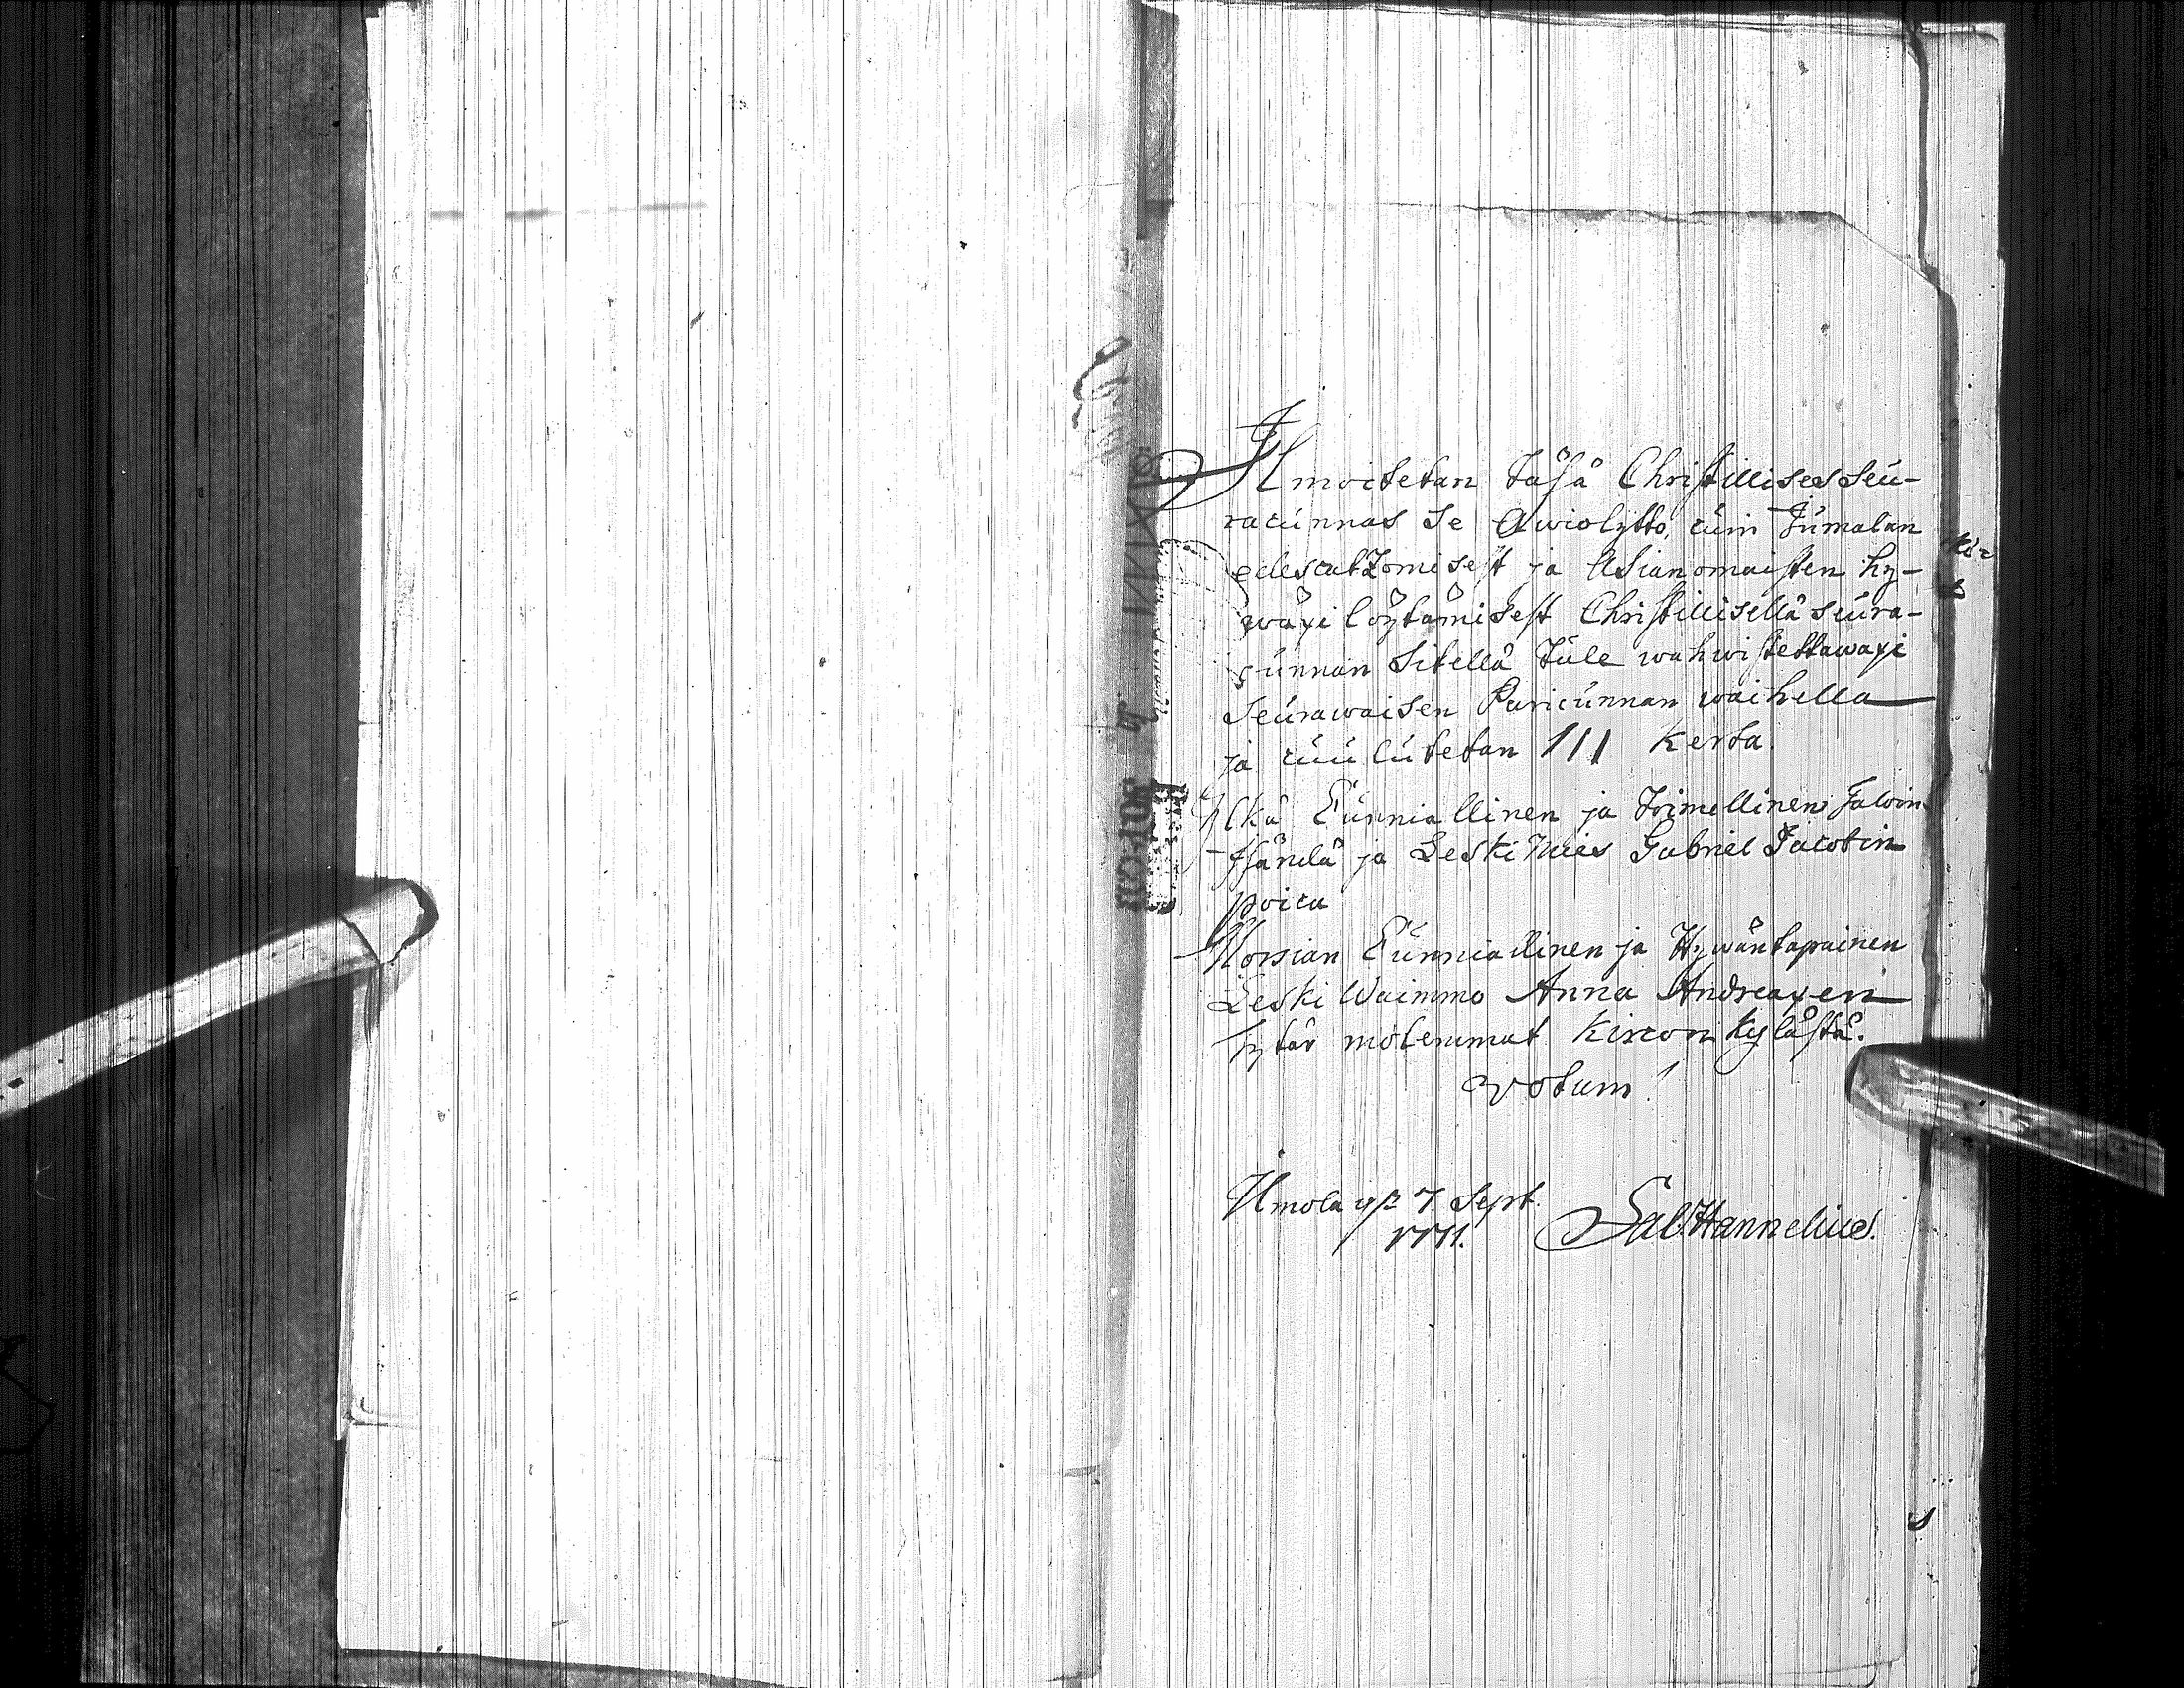 Ilmoitetan täsä Christillises Seu-
racunnas se Awiolijtto, cuin Jumalan
edescatzomisest ja Asianomaisten hy-
wäxi löytämisest Christillisellä seura-
cunnan Sitellä tule wahwistettawaxi
seurawaisen Paricunnan waihella
ja cuulutetan III Kerta.
Ylkä Cunniallinen ja toimellinen Talon
Isändä ja Leski Mies Gabriel Jacobin
poica
Morsian Cunniallinen ja Hywäntapainen
Leski Waimmo Anna Andreaxen
Tytär molemmat Kircon Kylästä.
Votum!
7. Sept.
1771.
Sal. Hannelius.